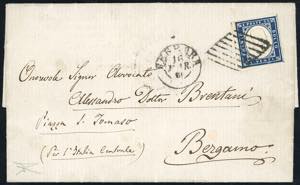 16
MAR
61
Onorevole Signor Avvocato
Alessandro Dottor Brentani
Piazza S. Tomaso
Bergamo
(Per l'Italia Centrale)